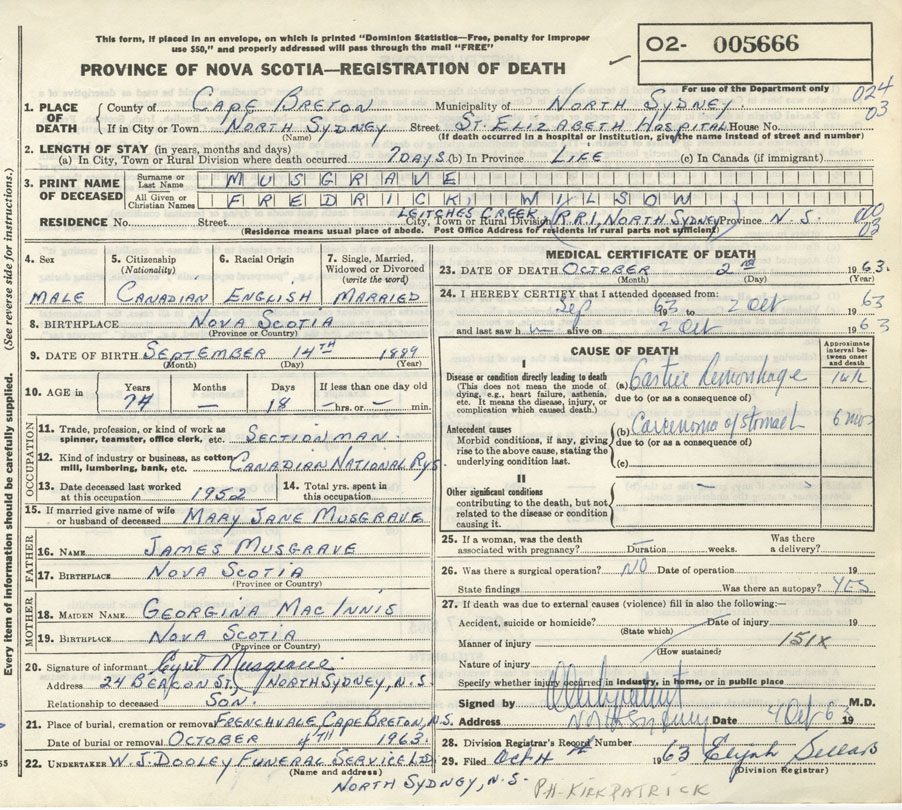 This form, if placed in an envelope, on which is printed "Dominion Statistics—Free, penalty for improper
use $50," and properly addressed will pass through the mail "FREE"
O2- 005666
PROVINCE OF NOVA SCOTIA—REGISTRATION OF DEATH
For use of the Department only
024
03
1. PLACE OF DEATH
County of CAPE BRETON Municipality of NORTH SYDNEY
If in City or Town NORTH SYDNEY Street ST. ELIZABETH HOSPITAL House No.
(Name) (If death occurred in hospital or institution, give the name instead of street and number)
2. LENGTH OF STAY (in years, months and days)
(a) In City, Town or Rural Division where death occurred 7 DAYS (b) In Province LIFE (c) In Canada (if immigrant)
3. PRINT NAME OF DECEASED
Surname or Last Name MUSGRAVE
All Given or Christian Names FREDRICK, WILSON
LEITCHES CREEK
RESIDENCE No. Street City, Town or Rural Division R.R.1, NORTH SYDNEY Province N.S.
(Residence means usual place of abode. Post Office Address for residents in rural parts not sufficient)
000
03
4. Sex MALE
5. Citizenship (Nationality) CANADIAN
6. Racial Origin ENGLISH
7. Single, Married, Widowed or Divorced (write the word) MARRIED
8. BIRTHPLACE NOVA SCOTIA
(Province or Country)
9. DATE OF BIRTH SEPTEMBER 14TH 1889
(Month) (Day) (Year)
10. AGE in Years 74 Months — Days 18 If less than one day old — hrs. or — min.
OCCUPATION
11. Trade, profession, or kind of work as spinner, teamster, office clerk, etc. SECTION MAN
12. Kind of industry or business, as cotton mill, lumbering, bank, etc. CANADIAN NATIONAL RYS.
13. Date deceased last worked at this occupation 1952
14. Total yrs. spent in this occupation
15. If married give name of wife or husband of deceased MARY JANE MUSGRAVE
FATHER
16. NAME JAMES MUSGRAVE
17. BIRTHPLACE NOVA SCOTIA
(Province or Country)
MOTHER
18. MAIDEN NAME GEORGINA MACINNIS
19. BIRTHPLACE NOVA SCOTIA
(Province or Country)
20. Signature of informant Cyril Musgrave
Address 24 BEACON ST., NORTH SYDNEY, N.S.
Relationship to deceased SON.
21. Place of burial, cremation or removal FRENCHVALE CAPE BRETON, N.S.
Date of burial or removal OCTOBER 4TH 1963
22. UNDERTAKER W.J. DOOLEY FUNERAL SERVICE LTD
(Name and address)
NORTH SYDNEY, N.S.
MEDICAL CERTIFICATE OF DEATH
23. DATE OF DEATH OCTOBER 2ND 1963.
(Month) (Day) (Year)
24. I HEREBY CERTIFY that I attended deceased from:
Sep 1963 to 2 Oct 63
and last saw h alive on 2 Oct 1963
CAUSE OF DEATH
Approximate interval between onset and death
I
Disease or condition directly leading to death
(This does not mean the mode of dying, e.g., heart failure, asthenia, etc. It means the disease, injury, or complication which caused death.)
(a) Gastric Hemorrhage
due to (or as a consequence of)
Antecedent causes
Morbid conditions, if any, giving rise to the above cause, stating the underlying condition last.
(b) Carcinoma of stomach 6 mos
due to (or as a consequence of)
(c)
II
Other significant conditions
contributing to the death, but not related to the disease or condition causing it.
—
25. If a woman, was the death associated with pregnancy? Duration weeks. Was there a delivery?
26. Was there a surgical operation? NO Date of operation 19
State findings Was there an autopsy? YES
27. If death was due to external causes (violence) fill in also the following:—
Accident, suicide or homicide? Date of injury 19
(State which)
Manner of injury 151X
(How sustained)
Nature of injury
Specify whether injury occurred in industry, in home, or in public place
Signed by M.D.
Address North Sydney Date 4 Oct 63 19
28. Division Registrar's Record Number
29. Filed Oct 4 1963 Elijah
(Division Registrar)
P.H. KIRKPATRICK
Every item of information should be carefully supplied. (See reverse side for instructions.)